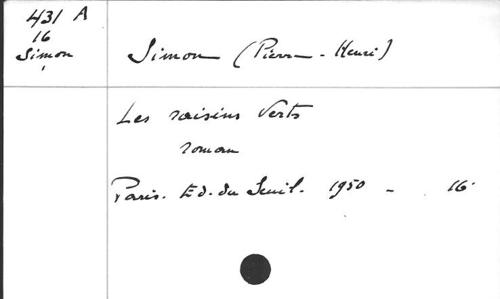 431 A
16
Simon
Simon (Pierre-Henri)
Les raisins verts
roman
Paris. Ed. du Seuil. 1950 - 16°